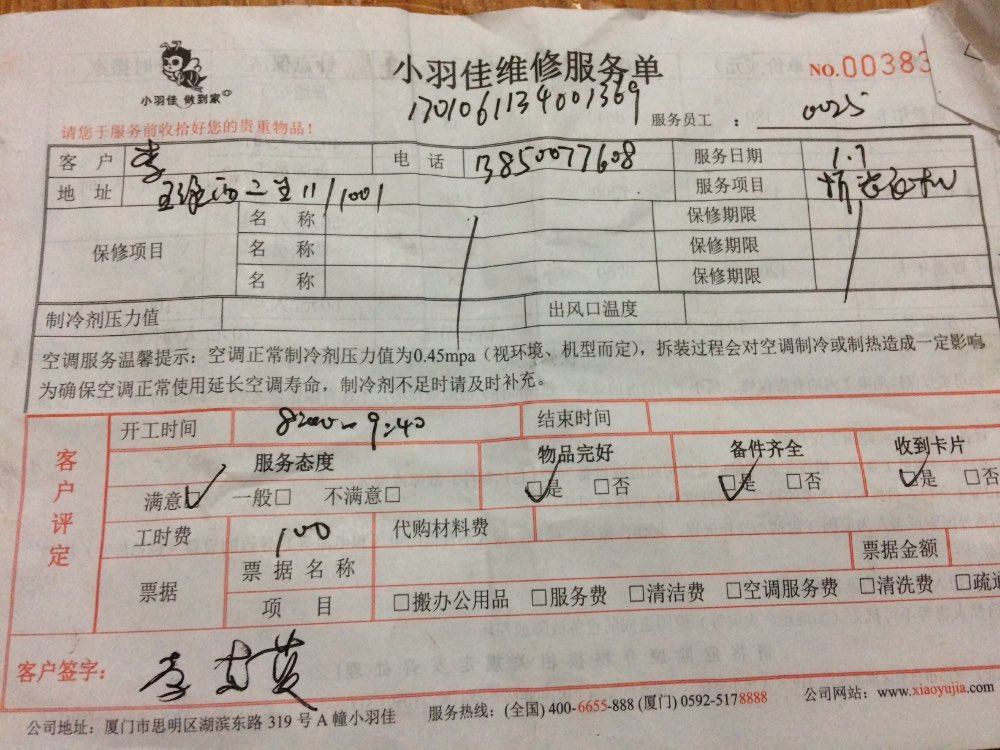 小羽佳维修服务单
NO.00383
小羽佳 做到家
1701061134001369
服务员工 ： 0025
请您于服务前收拾好您的贵重物品！
客 户 李 电 话 13850077608 服务日期 1.7
地 址 二里11/1001 服务项目
保修项目 名 称 保修期限
名 称 保修期限
名 称 保修期限
制冷剂压力值 出风口温度
空调服务温馨提示：空调正常制冷剂压力值为0.45mpa（视环境、机型而定），拆装过程会对空调制冷或制热造成一定影响
为确保空调正常使用延长空调寿命，制冷剂不足时请及时补充。
客户评定
开工时间 9:40 结束时间
服务态度 物品完好 备件齐全 收到卡片
满意☑ 一般□ 不满意□ ☑是 □否 ☑是 □否 ☑是 □否
工时费 100 代购材料费
票据 票据名称 票据金额
项 目 □搬办公用品 □服务费 □清洁费 □空调服务费 □清洗费 □疏通
客户签字： 李
公司地址：厦门市思明区湖滨东路 319 号 A 幢小羽佳 服务热线：(全国) 400-6655-888 (厦门) 0592-5178888 公司网站：www.xiaoyujia.com